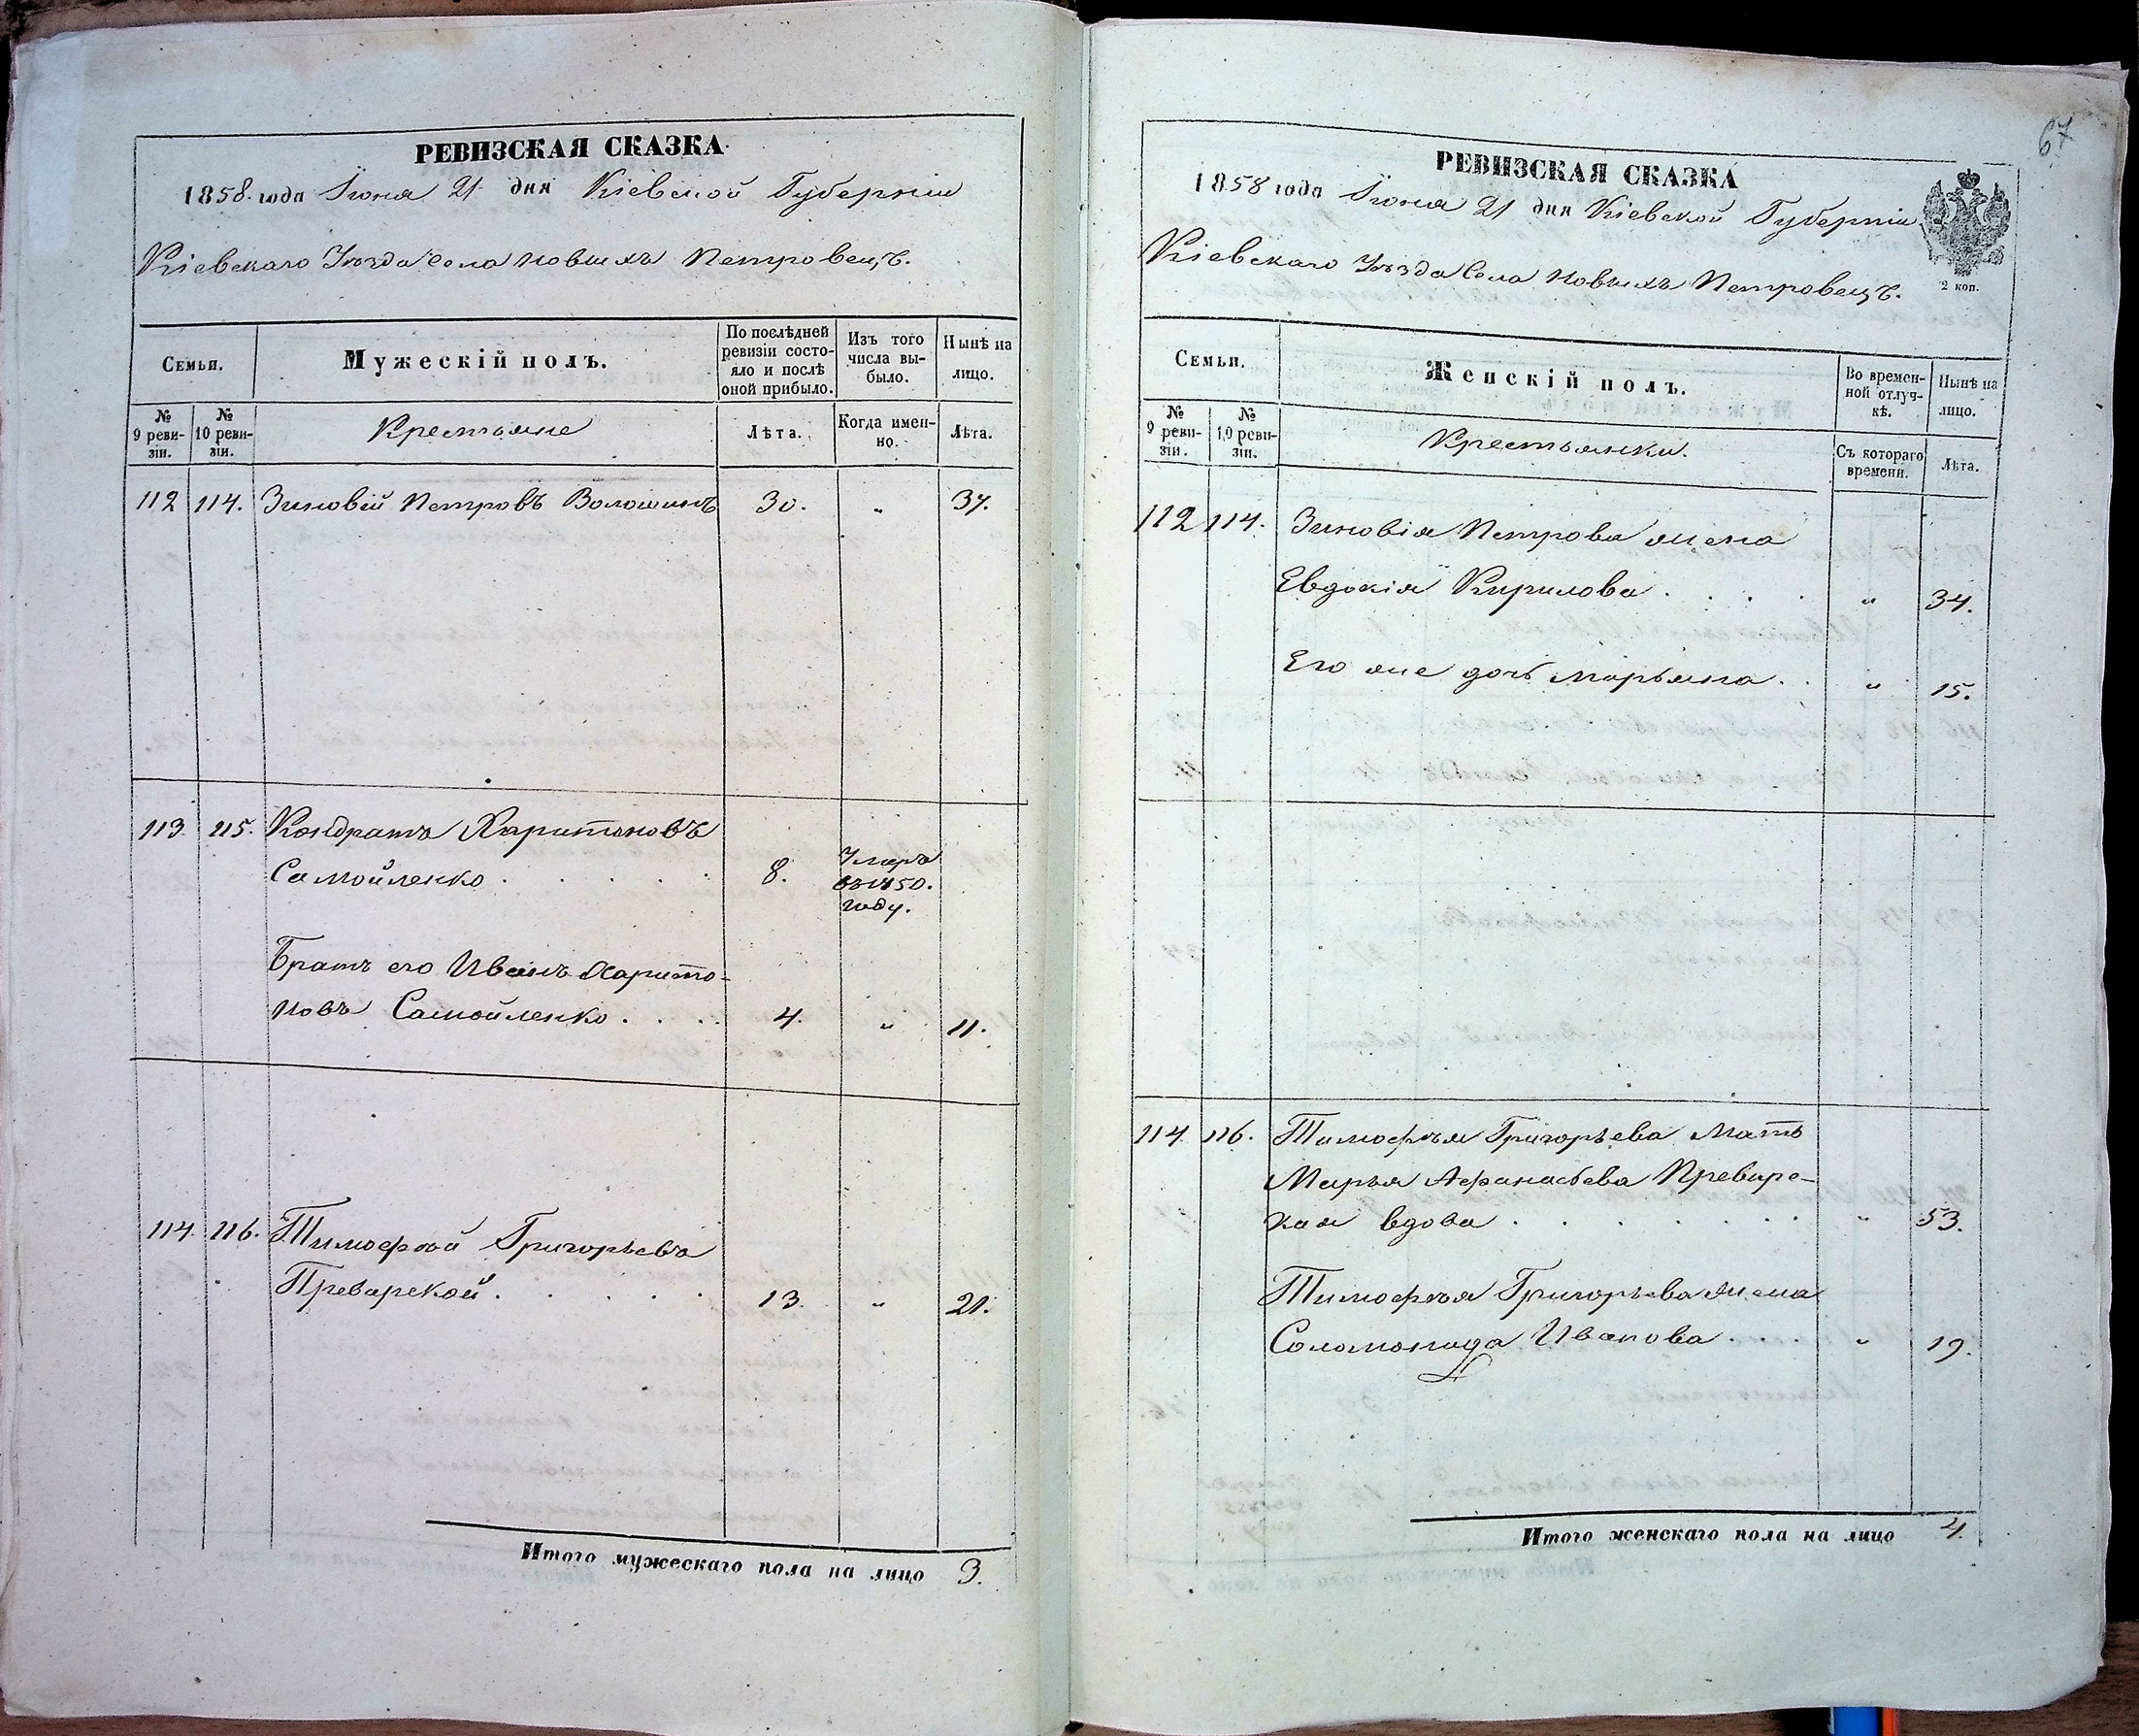 РЕВИЗСКАЯ СКАЗКА
1858 года Іюня 21 дня Кіевской Губерніи
Кіевскаго Уѣзда Села Новыхъ Петровецъ.
Семьи.
Мужескій полъ.
По послѣдней ревизіи состояло и послѣ оной прибыло.
Изъ того числа выбыло.
Нынѣ на лицо.
№ 9 ревизіи.
№ 10 ревизіи.
Крестьяне
Лѣта.
Когда именно.
Лѣта.
112 114. Зиновій Петровъ Волошинъ 30. „ 37.
113. 115. Кондратъ Харитоновъ
Самойленко . . . . . 8. Умеръ въ 1850. году.
Братъ его Иванъ Харито-
новъ Самойленко . . . . 4. „ 11.
114. 116. Тимофѣй Григорьевъ
Преварской . . . . . 13. „ 21.
Итого мужескаго пола на лицо 3.
67
РЕВИЗСКАЯ СКАЗКА
1858 года Іюня 21 дня Кіевской Губерніи
Кіевскаго Уѣзда Села Новыхъ Петровецъ.
2 коп.
Семьи.
Женскій полъ.
Во временной отлучкѣ.
Нынѣ на лицо.
№ 9 ревизіи.
№ 10 ревизіи.
Крестьянки.
Съ котораго времени.
Лѣта.
112 114. Зиновія Петрова жена
Евдокія Кирилова . . . . „ 34.
Его же дочь Марьяна . . „ 15.
114. 116. Тимофѣя Григорьева Мать
Марья Афанасьева Преварс-
кая вдова . . . . . . . „ 53.
Тимофѣя Григорьева жена
Соломонида Иванова . . . . „ 19.
Итого женскаго пола на лицо 4.